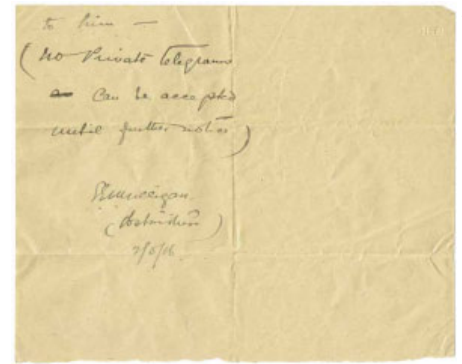 to him —
(No Private Telegrams
can be accepted
until further notice)
7/5/16